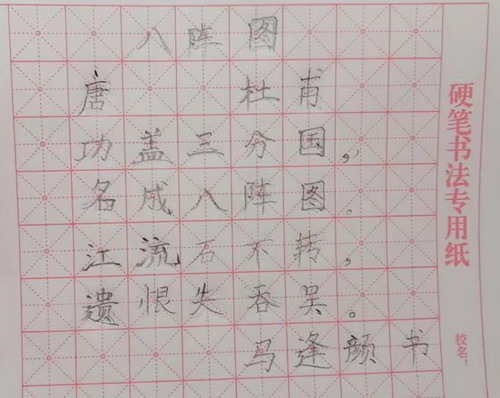 八阵图
唐 杜甫
功盖三分国，
名成八阵图。
江流石不转，
遗恨失吞吴。
马逢颜书
硬笔书法专用纸
校名：